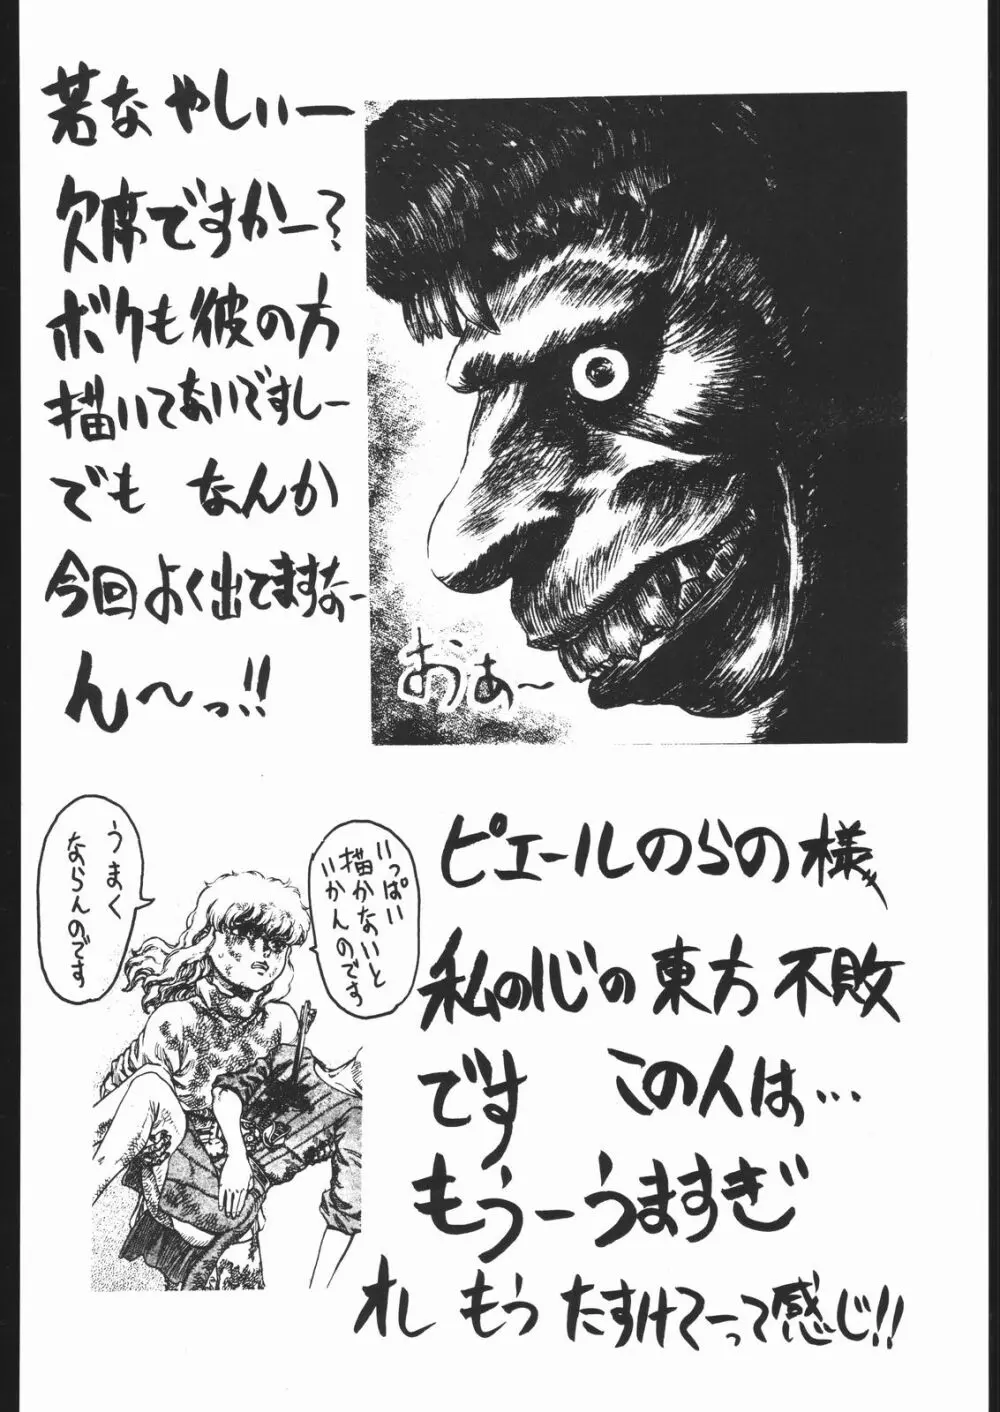 若なやしぃー
欠席ですかー?
ボクも彼の方
描いてあいですしー
でも なんか
今回よく出てますなー
ん〜っ!!
おあ〜
いっぱい
描かないと
いかんのです
うまく
ならんのです
ピエールのらの様
私の心の東方不敗
です この人は…
もうーうますぎ
オレ もう たすけてーって感じ!!